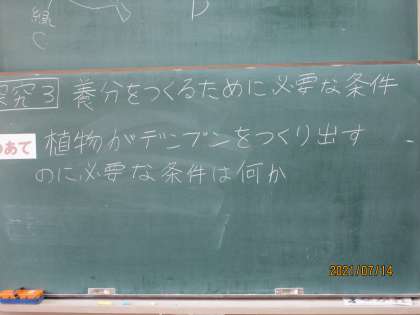 緑 D
C
探究3 養分をつくるために必要な条件
めあて 植物がデンプンをつくり出す
のに必要な条件は何か
2021/07/14